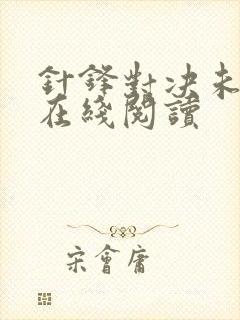 針鋒對決未
在綫閱讀
宋會庸